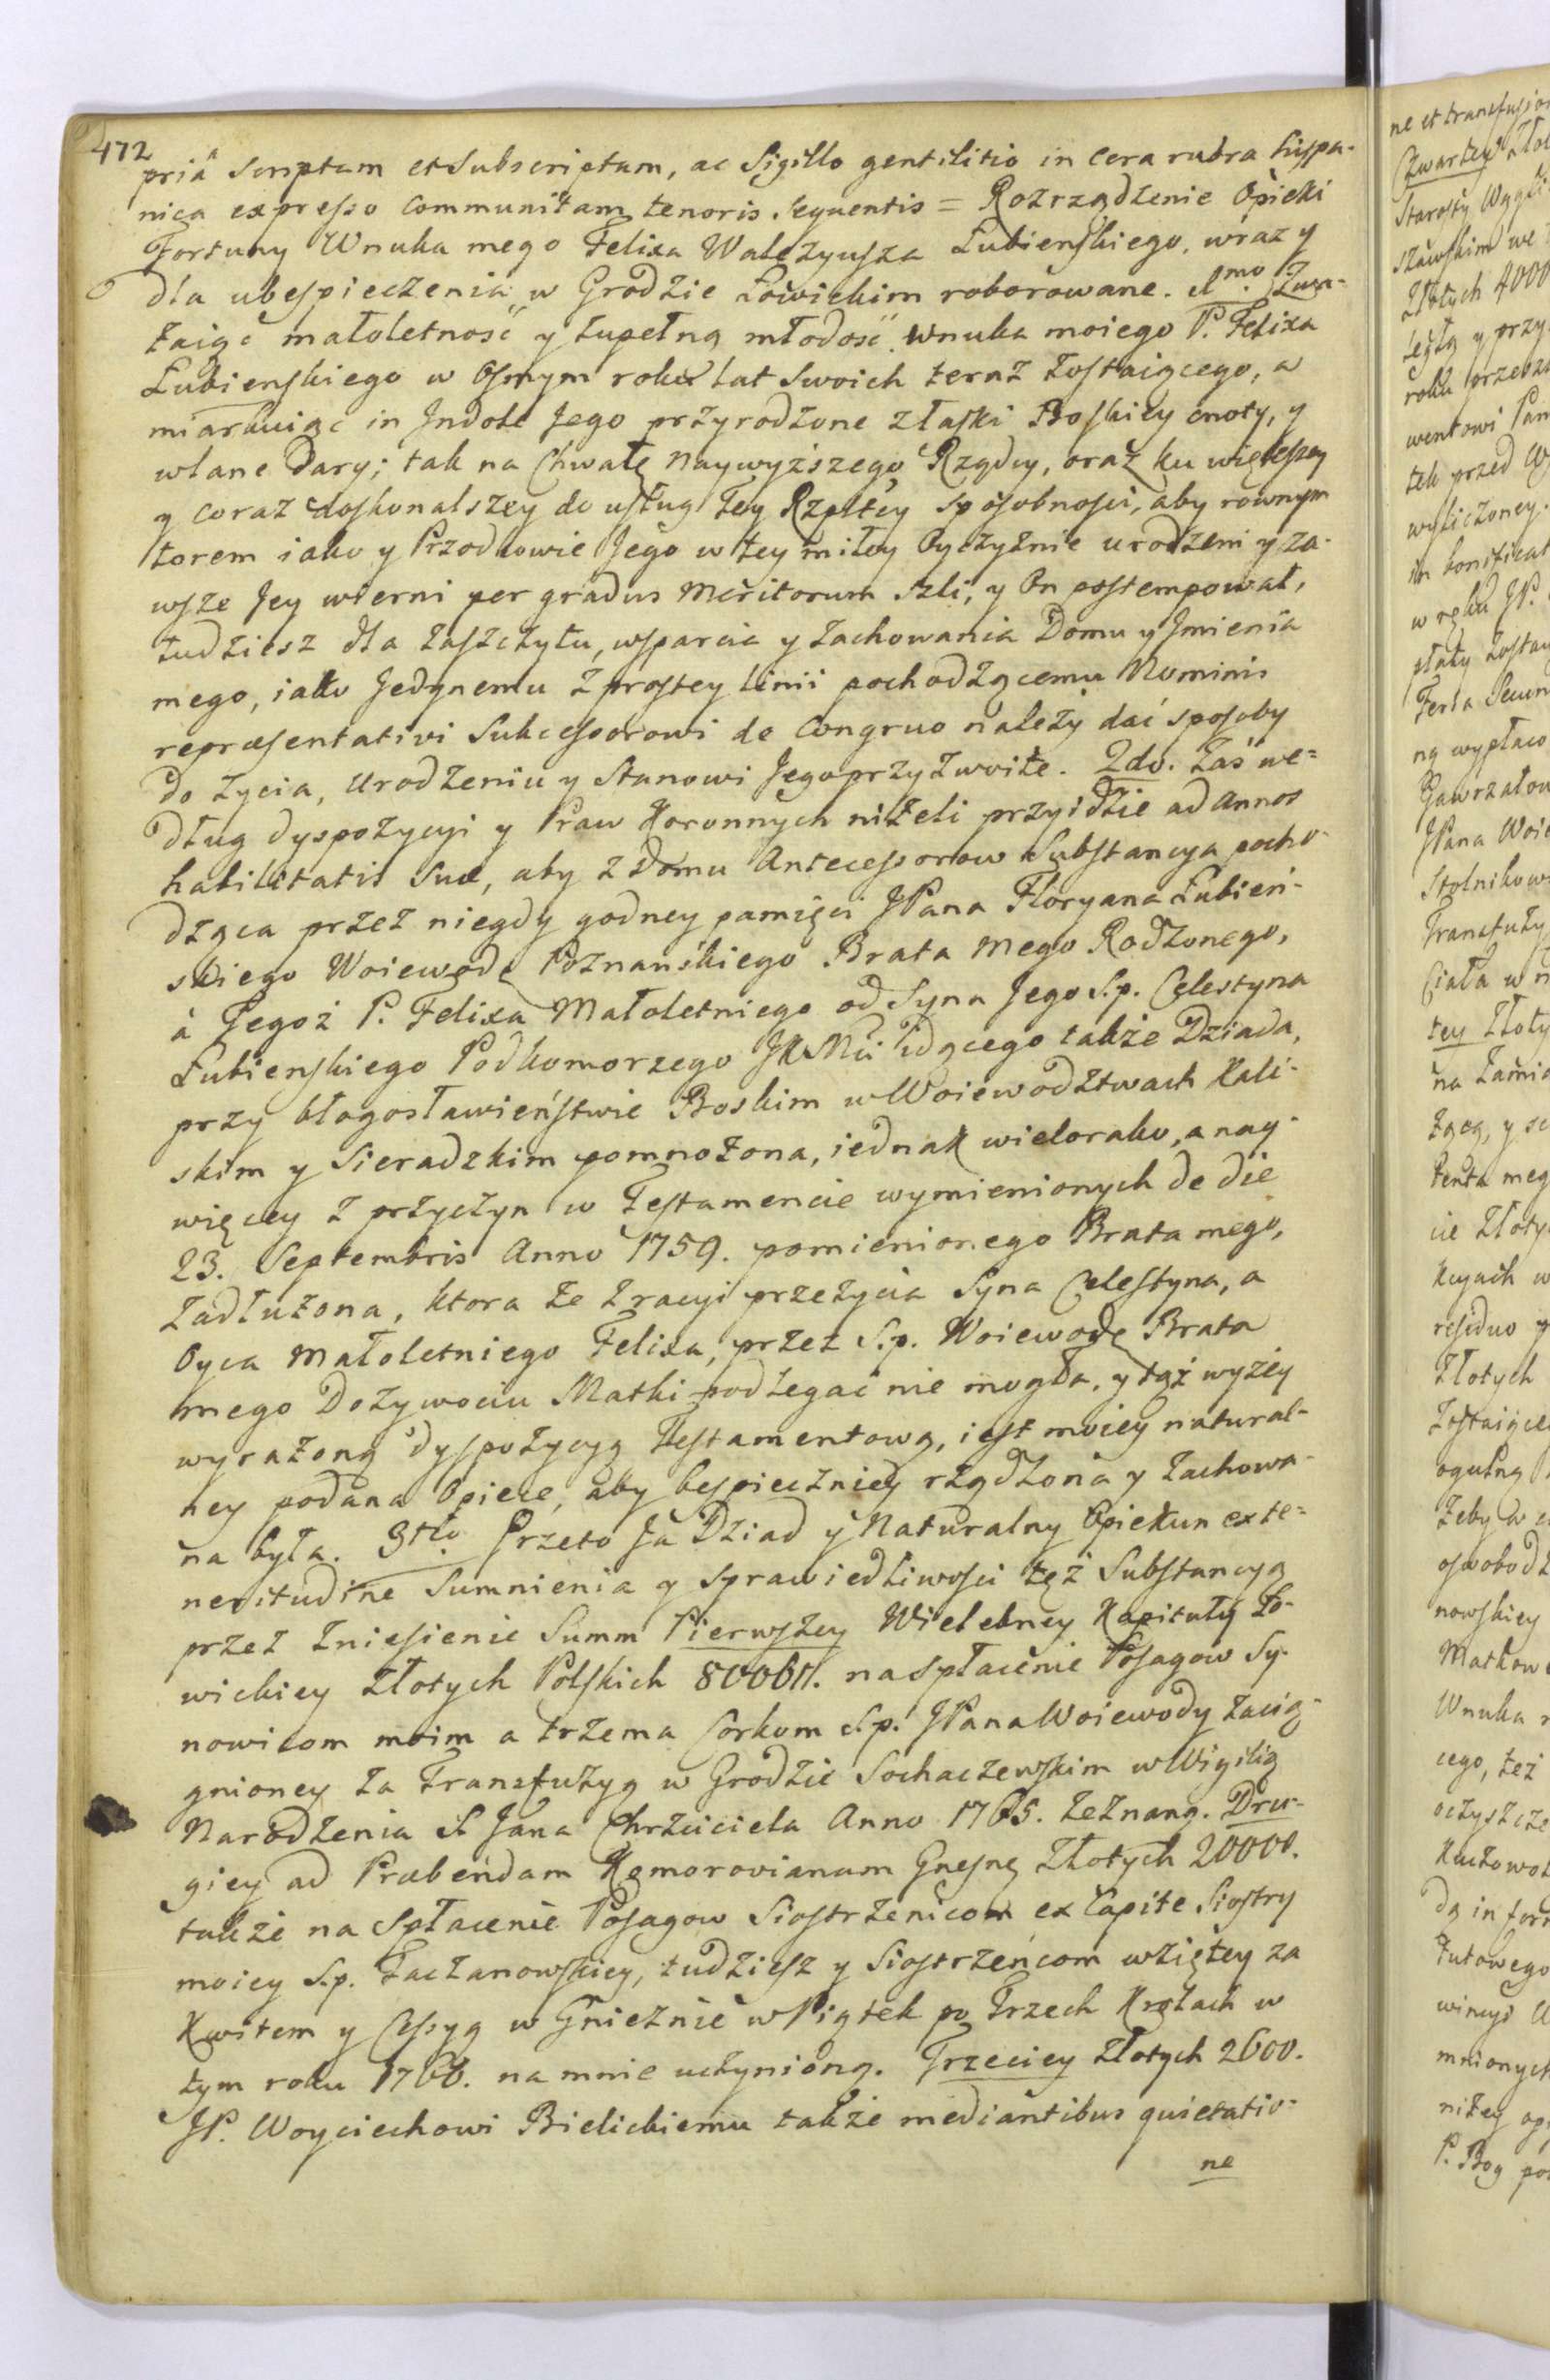 472
priâ scriptam et Subscriptam, ac Sigillo gentilitio in cera rubra hispa-
nica expresso communitam tenoris sequentis = Rozrządzenie Opieki
Fortuny Wnuka mego Felixa Wależyusza Łubienskiego, wraz y
dla ubespieczenia w Grodzie Łowickim roborowane. 1mo Zwa-
żaiąc małoletność y zupełną młodość wnuka moiego P. Felixa
Łubienskiego w Osmym roku lat swoich teraz zostaiącego, a
miarkuiąc in Indole Jego przyrodzone z łaski Boskiey cnoty, y
wlane Dary; tak na Chwałę Naywyższego Rządcy, oraz ku większey
y coraz doskonalszey do usług tey Rzpltey sposobności, aby rownym
torem iako y Przodkowie Jego w tey miłey Oyczyznie urodzeni y za-
wsze Jey wierni per gradus meritorum szli, y On postempował,
tudziesz dla zaszczytu, wsparcia y zachowania Domu y Imienia
mego, iako Jedynemu z prostey linii pochodzącemu Nominis
repræsentativi Sukcessorowi de congruo należy dać sposoby
do życia, Urodzeniu y Stanowi Jego przyzwoite. 2do. Zaś we-
dług dyspozycyi y Praw Koronnych niżeli przyidzie ad annos
habilitatis Suæ, aby z Domu Antecessorow Substancya pocho-
dząca przez niegdy godney pamięci JPana Floryana Łubień-
skiego Woiewodę Poznańskiego Brata mego Rodzonego,
à Tegoż P. Felixa Małoletniego od Syna Jego S.p. Celestyna
Łubienskiego Podkomorzego JKMci idącego także Dziada,
przy błogosławieństwie Boskim w Woiewodztwach Kali-
skim y Sieradzkim pomnożona, iednak wielorako, a nay-
więcey z przyczyn w Testamencie wymienionych de die
23. Septembris Anno 1759. pomienionego Brata mego,
zadłużona, ktora że z racyi przeżycia Syna Celestyna, a
Oyca Małoletniego Felixa, przez S.p. Woiewodę Brata
mego Dożywociu Matki podlegać nie mogła, y tąż wyżey
wyrażoną dyspozycyą Testamentową, iest moiey natural-
ney podana Opiece, aby bespieczniey rządzona y zachowa-
na była. 3tio Przeto Ja Dziad y Naturalny Opiekun ex te-
neritudine Sumnienia y Sprawiedliwości też Substancyą
przez zniesienie Summ Pierwszey Wielebney Kapituły Ło-
wickiey złotych Polskich 80000. na spłacenie Posagow Sy-
nowicom moim a trzema Corkom S.p. JPana Woiewody zacią-
gnioney za Transfuzyą w Grodzie Sochaczewskim w Wigilią
Narodzenia S. Jana Chrzciciela Anno 1765. zeznaną. Dru-
giey ad Præbendam Komorovianam Gnesnę złotych 20000.
także na Spłacenie Posagow Siostrzenicom ex Capite Siostry
moiey S.p. Taczanowskiey, tudziesz y Siostrzeńcom wziętey za
Kwitem y Cessyą w Gnieznie w Piątek po Trzech Krolach w
tym roku 1766. na mnie uczynioną. Trzeciey złotych 2600.
JP. Woyciechowi Bielickiemu także mediantibus quietatio-
ne